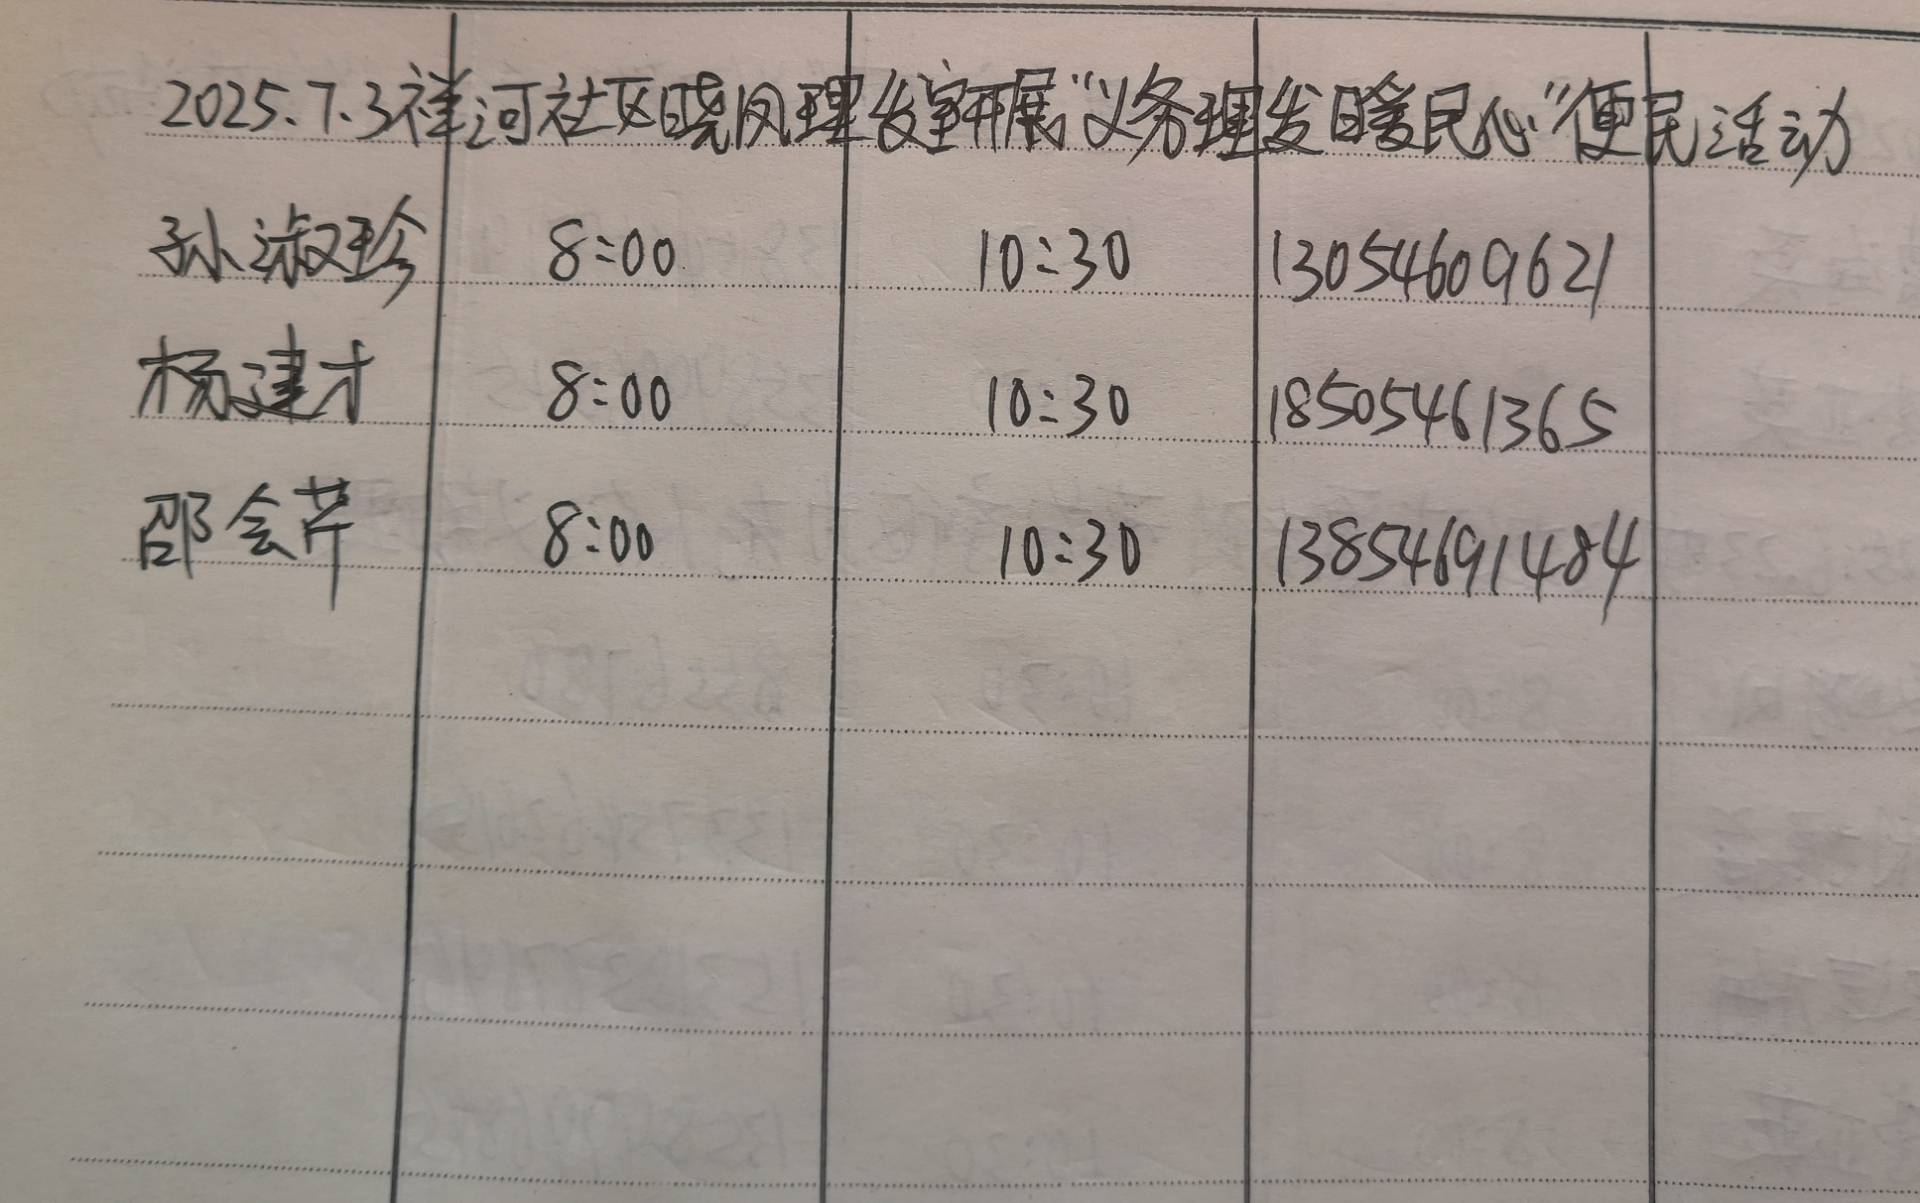 2025.7.3祥河社区晓凤理发室开展“义务理发暖民心”便民活动
孙淑珍 8:00 10:30 13054609621
杨建才 8:00 10:30 18505461365
邵会芹 8:00 10:30 13854691484